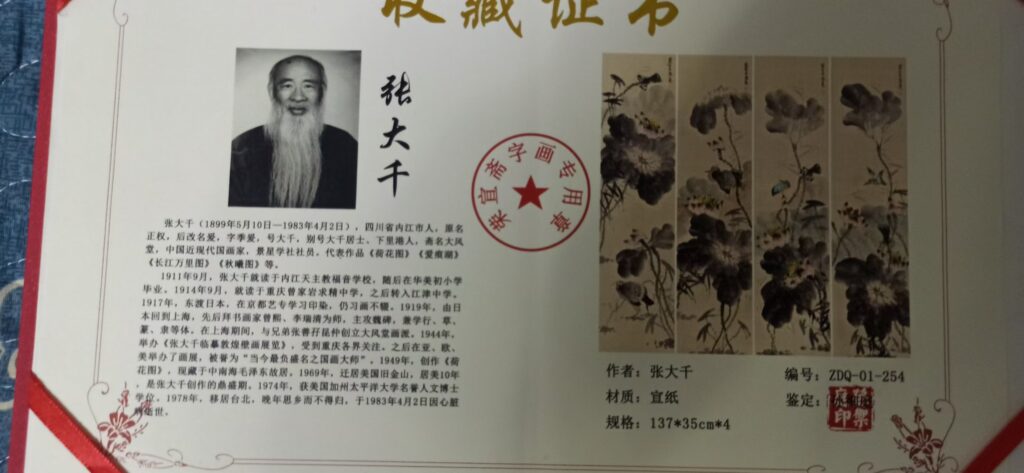 收藏证书
张大千
荣宣斋字画专用章
张大千（1899年5月10日—1983年4月2日），四川省内江市人，原名
正权，后改名爰，字季爰，号大千，别号大千居士、下里港人，斋名大风
堂，中国近现代国画家，景星学社社员。代表作品《荷花图》《爱痕湖》
《长江万里图》《秋曦图》等。
1911年9月，张大千就读于内江天主教福音学校，随后在华美初小学
毕业。1914年9月，就读于重庆曾家岩求精中学，之后转入江津中学。
1917年，东渡日本，在京都艺专学习印染，仍习画不辍。1919年，由日
本回到上海，先后拜书画家曾熙、李瑞清为师，主攻魏碑，兼学行、草、
篆、隶等体。在上海期间，与兄弟张善孖昆仲创立大风堂画派。1944年，
举办《张大千临摹敦煌壁画展览》，受到重庆各界关注。之后在亚、欧、
美举办了画展，被誉为“当今最负盛名之国画大师”。1949年，创作《荷
花图》，现藏于中南海毛泽东故居，1969年，迁居美国旧金山，居美10年
，是张大千创作的鼎盛期。1974年，获美国加州太平洋大学名誉人文博士
学位。1978年，移居台北，晚年思乡而不得归，于1983年4月2日因心脏
病逝世。
作者：张大千
材质：宣纸
规格：137*35cm*4
编号：ZDQ-01-254
鉴定：